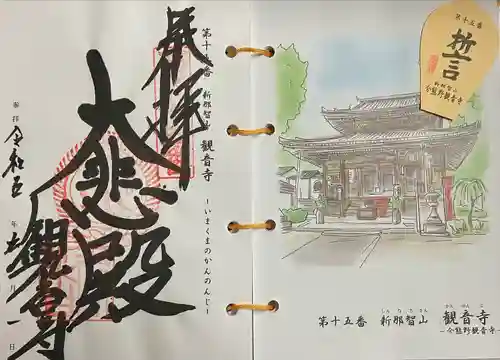 奉拝
第十五番 新那智山 観音寺
-いまくまのかんのんじ-
大悲殿
観音寺
奉拝 令和五年十一月一日
第十五番
哲言
新那智山
今熊野観音寺
しんなちさん かんのんじ
第十五番 新那智山 観音寺
-今熊野観音寺-